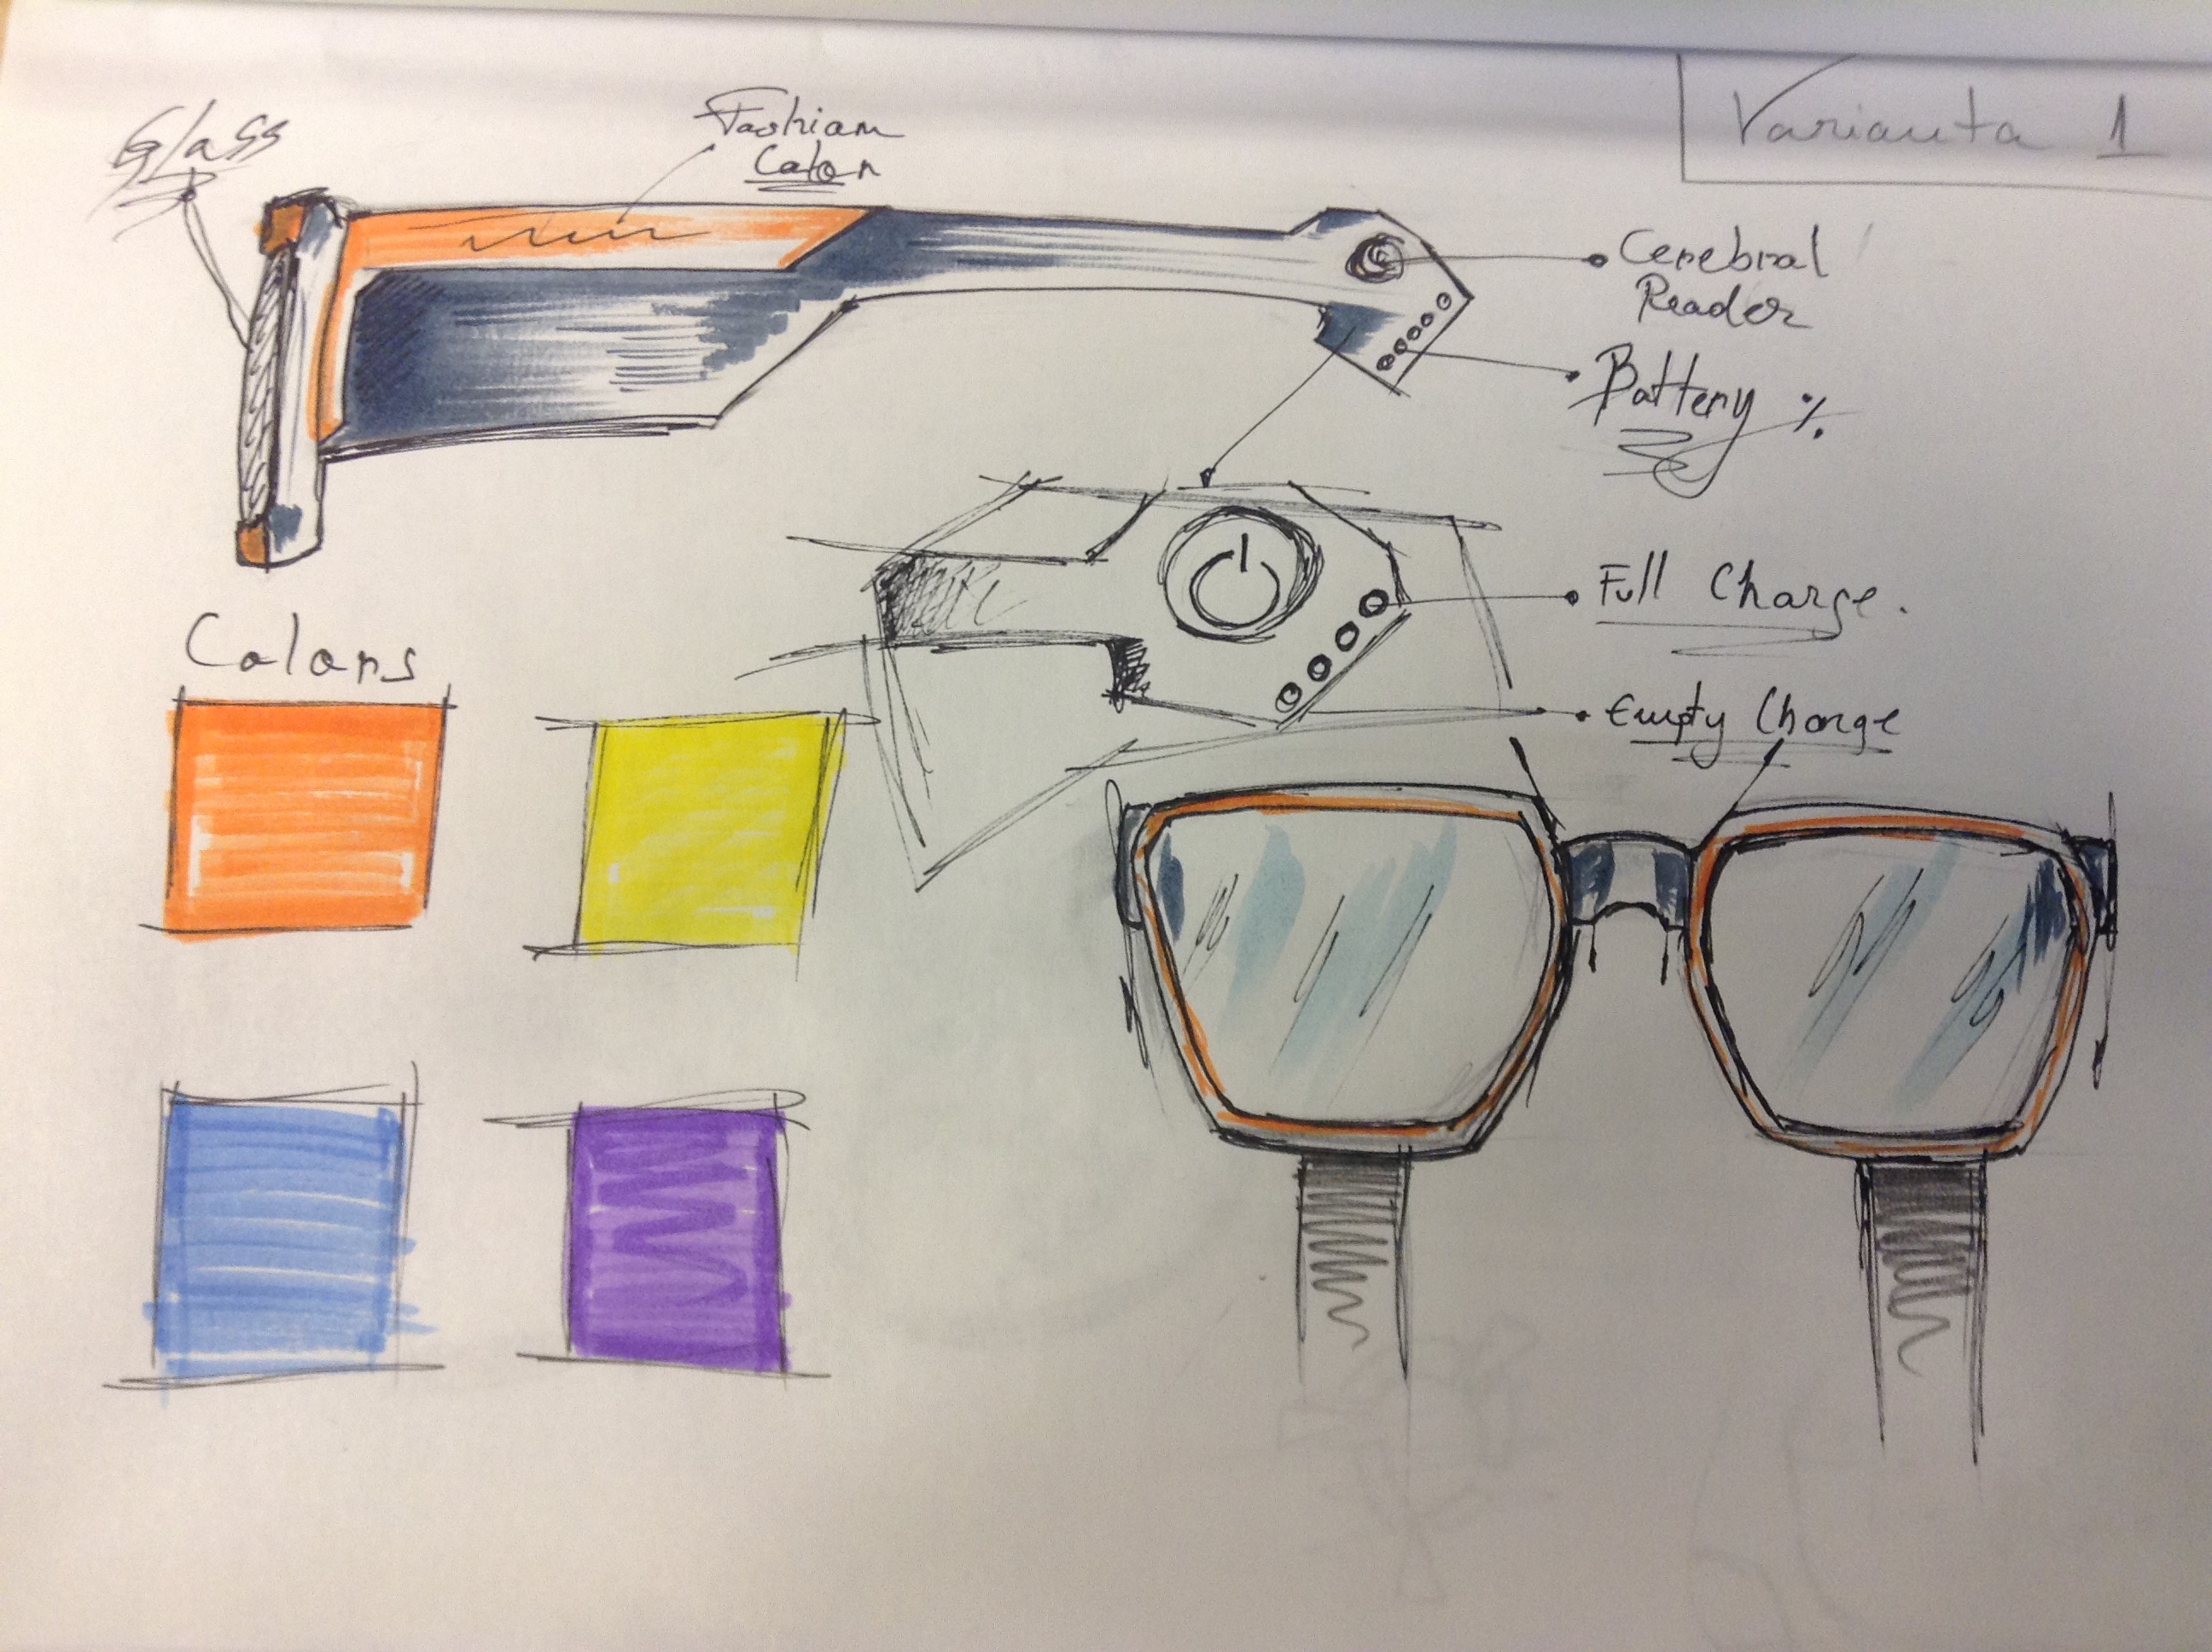 Varianta 1
Glass
Fashion
Color
Cerebral
Reader
Battery %
Full Charge.
Empty Charge
Colors